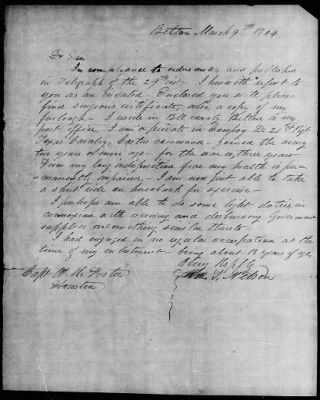 Belton March 9th 1864
Dr Sir
In compliance to orders and published
in Telegraph of the 29th inst I herewith report to
you as an invalid Enclosed you will please
find surgeons certificate, also, a copy of my
furlough — I reside in Bell county, this place is my
post office, I am a private in Company 21st Regt
Texas Cavalry, Carters command — joined the army
two years or more ago for the war or three years —
From my long indisposition fear my health is per-
manently impaired — I am now just able to take
a short ride on horseback for exercise —
I perhaps am able to do some light duties in
connexion with receiving and disbursing Government
supplies or something similar thereto —
I had engaged in no regular occupation at the
time of my enlistment being about 18 years of age
Very Respfly
Wm S. Nelson
Capt
Houston